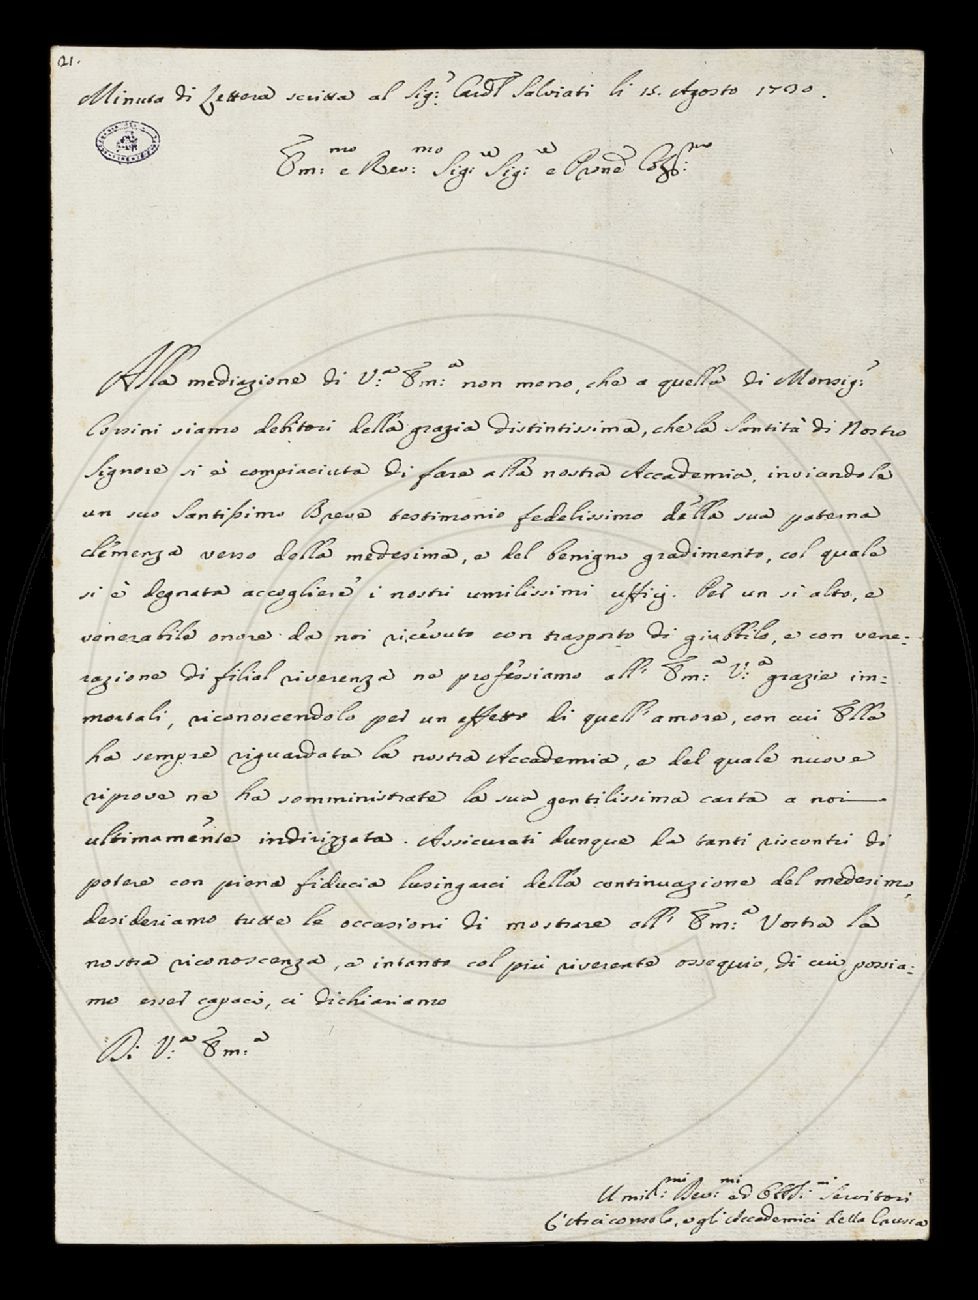 21.
Minuta di Lettera scritta al Sig.r Card.l Salviati li 15. Agosto 1730.
Em:mo e Rev:mo Sig:re Sig:re e Prone Col:mo
Alla mediazione di V:a Em:a non meno, che a quella di Monsig:r
Corsini siamo debitori della grazia distintissima, che la Santità di Nostro
Signore si è compiaciuta di fare alla nostra Accademia, inviandole
un suo Santissimo Breve testimonio fedelissimo della sua paterna
clemenza verso della medesima, e del benigno gradimento, col quale
si è degnata accogliere i nostri umilissimi uffizj. Per un si alto, e
venerabile onore da noi ricevuto con trasporto di giubbilo, e con vene=
razione di filial riverenza ne professiamo all' Em:a V:a grazie im=
mortali, riconoscendolo per un effetto di quell'amore, con cui Ella
ha sempre riguardata la nostra Accademia, e del quale nuove
riprove ne ha somministrate la sua gentilissima carta a noi
ultimamente indirizzata. Assicurati dunque da tanti riscontri di
potere con piena fiducia lusingarci della continuazione del medesimo,
desideriamo tutte le occasioni di mostrare all' Em:a Vostra la
nostra riconoscenza, e intanto col più riverente ossequio, di cui possia=
mo esser capaci, ci dichiariamo
Di V:a Em:a
Umil:mi Dev:mi ed Obb:mi Servitori
L'Arciconsolo, e gli Accademici della Crusca